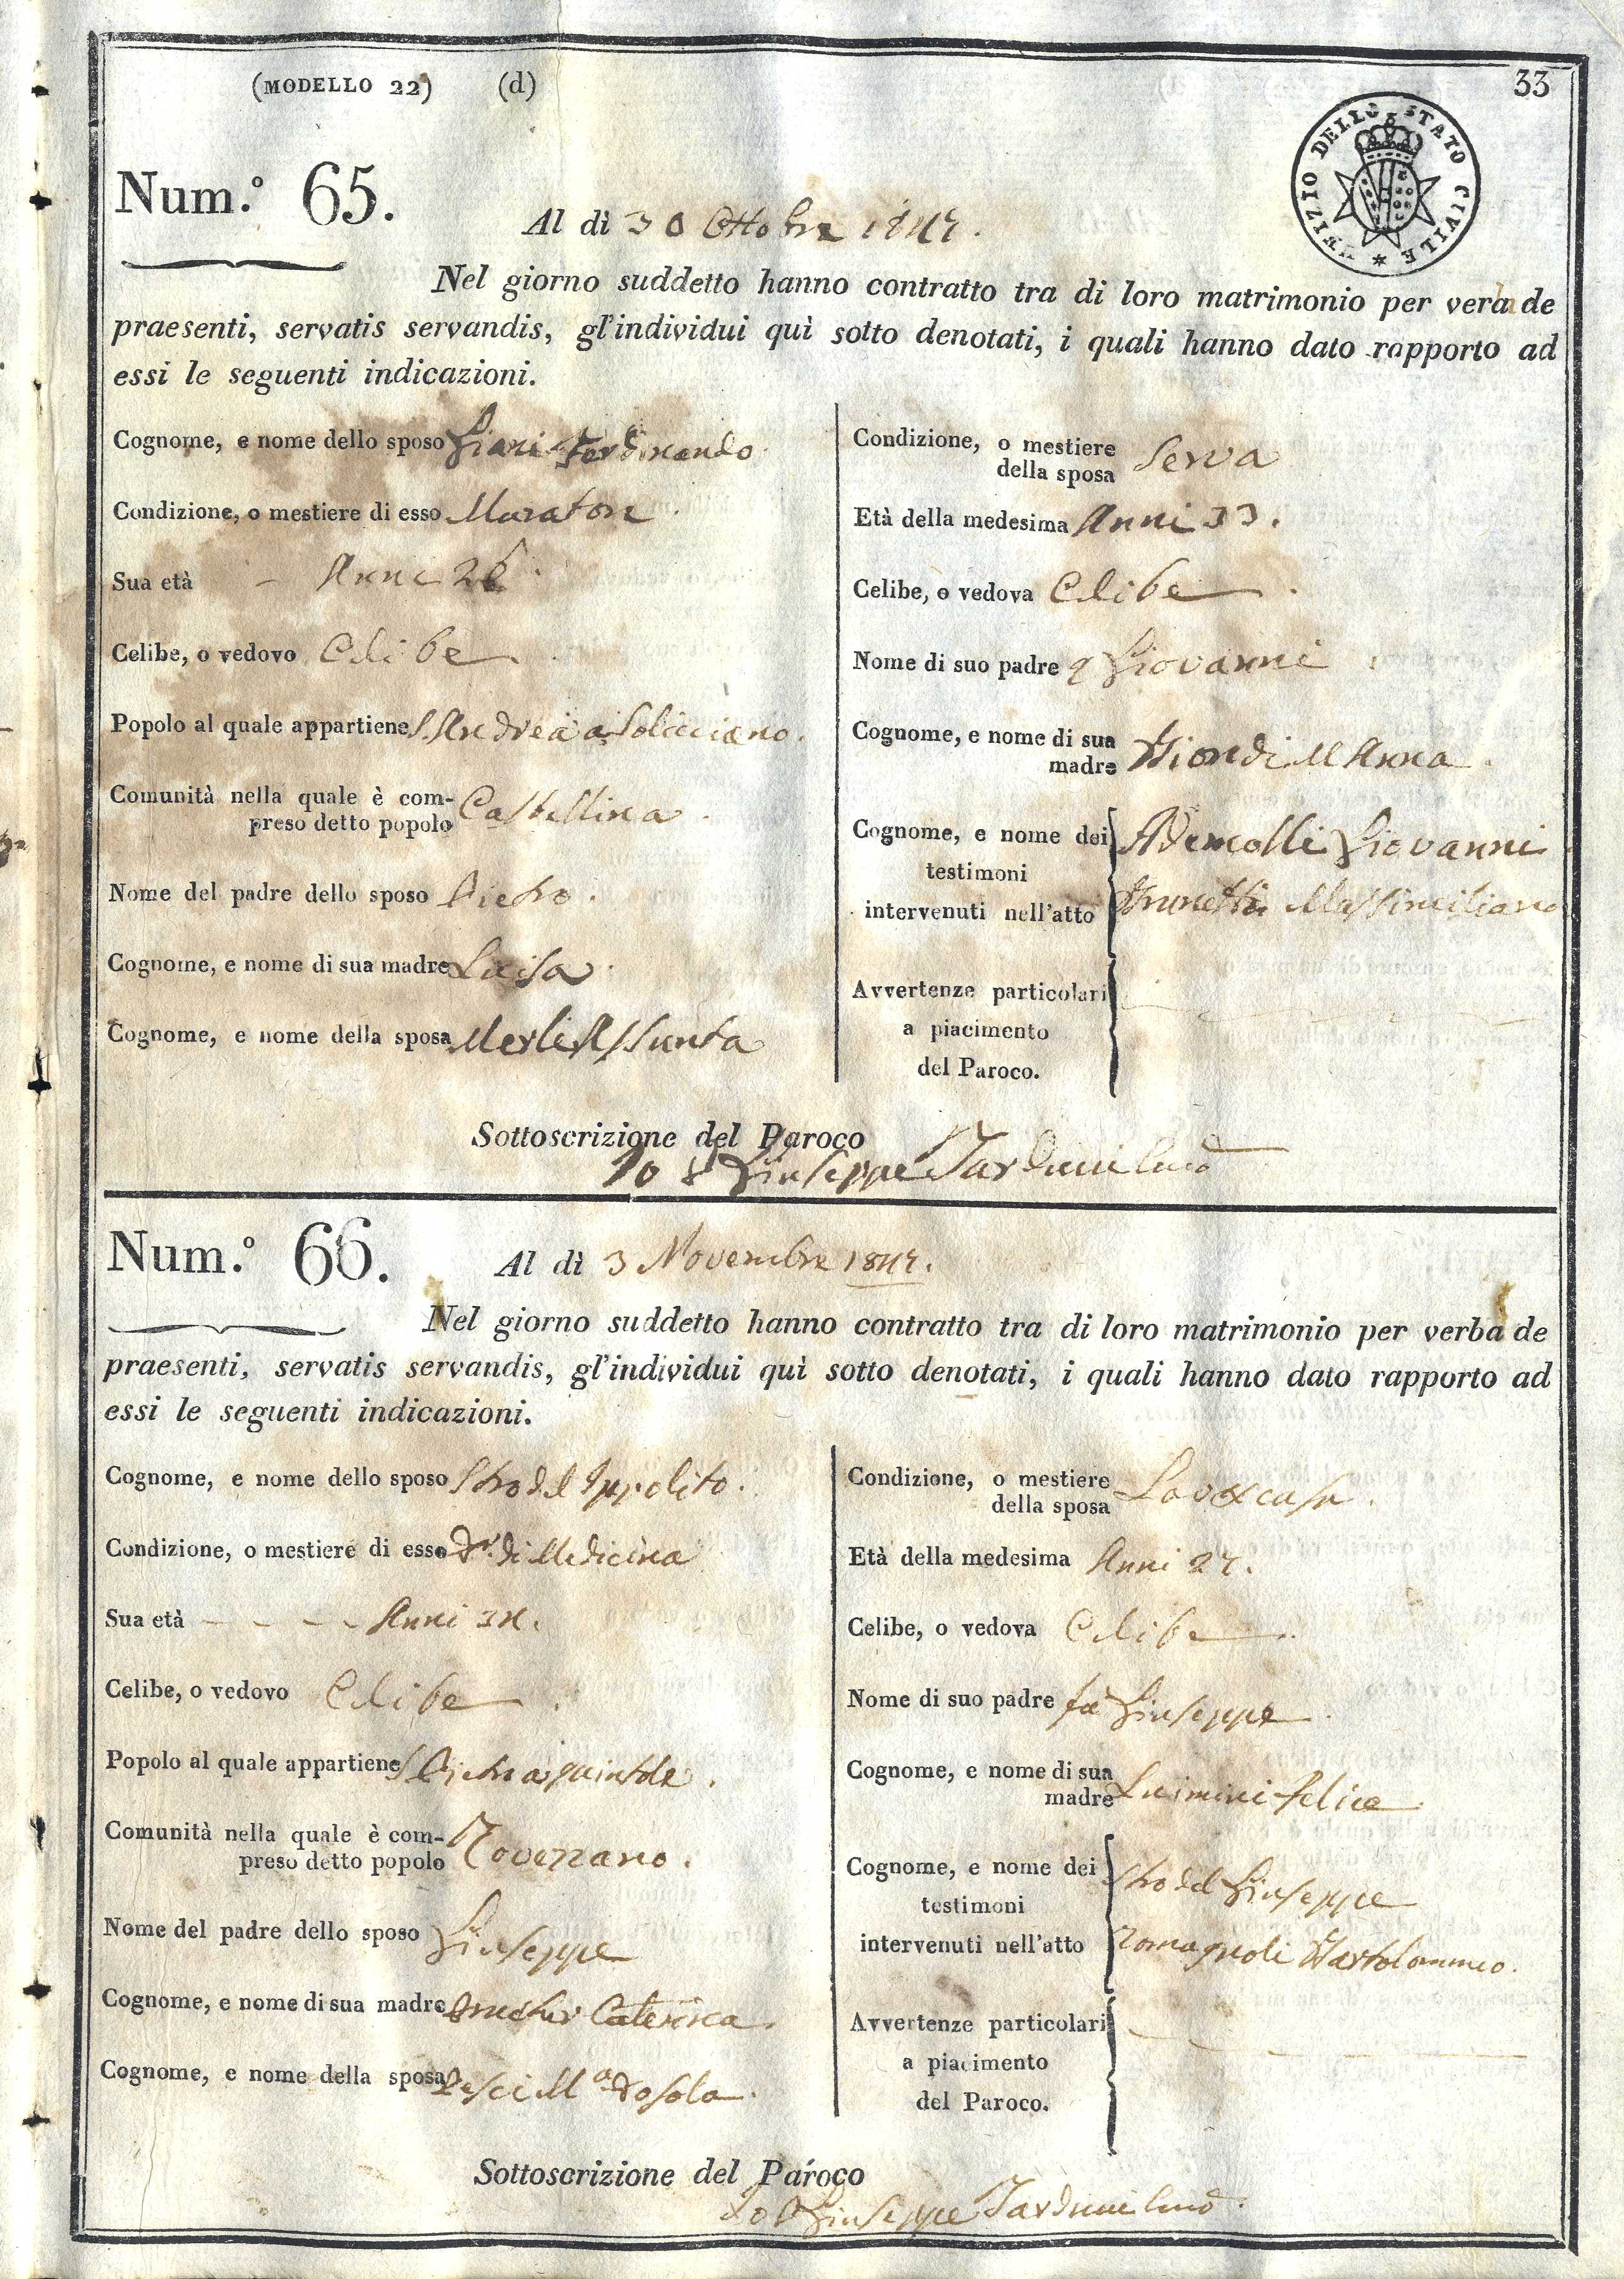 (MODELLO 22) (d) 33
UFIZIO DELLO STATO CIVILE
Num.º 65.
Al dì 30 Ottobre
Nel giorno suddetto hanno contratto tra di loro matrimonio per verba de
praesenti, servatis servandis, gl'individui quì sotto denotati, i quali hanno dato rapporto ad
essi le seguenti indicazioni.
Cognome, e nome dello sposo Ferdinando
Condizione, o mestiere di esso Muratore
Sua età Anni
Celibe, o vedovo Celibe
Popolo al quale appartiene S. Andrea a Soliciano.
Comunità nella quale è com-
preso detto popolo Castellina
Nome del padre dello sposo Pietro.
Cognome, e nome di sua madre Luisa
Cognome, e nome della sposa Merli Assunta
Condizione, o mestiere
della sposa Serva
Età della medesima Anni 33.
Celibe, o vedova Celibe
Nome di suo padre q Giovanni
Cognome, e nome di sua
madre Biondi M Anna
Cognome, e nome dei
testimoni
intervenuti nell'atto
Ademolli Giovanni
Brunetti Massimiliano
Avvertenze particolari
a piacimento
del Paroco.
Sottoscrizione del Paroco
Io Giuseppe
Num.º 66.
Al dì 3 Novembre
Nel giorno suddetto hanno contratto tra di loro matrimonio per verba de
praesenti, servatis servandis, gl'individui quì sotto denotati, i quali hanno dato rapporto ad
essi le seguenti indicazioni.
Cognome, e nome dello sposo Strodel Ippolito.
Condizione, o mestiere di esso Dr. di Medicina
Sua età Anni
Celibe, o vedovo Celibe
Popolo al quale appartiene S Pietro a quintole.
Comunità nella quale è com-
preso detto popolo Rovezzano.
Nome del padre dello sposo Giuseppe
Cognome, e nome di sua madre Caterina.
Cognome, e nome della sposa Pesci Ma
Condizione, o mestiere
della sposa
Età della medesima Anni
Celibe, o vedova Celibe
Nome di suo padre fu Giuseppe
Cognome, e nome di sua
madre Felice
Cognome, e nome dei
testimoni
intervenuti nell'atto
Strodel Giuseppe
Romagnoli Bartolommeo.
Avvertenze particolari
a piacimento
del Paroco.
Sottoscrizione del Paroco
Io Giuseppe